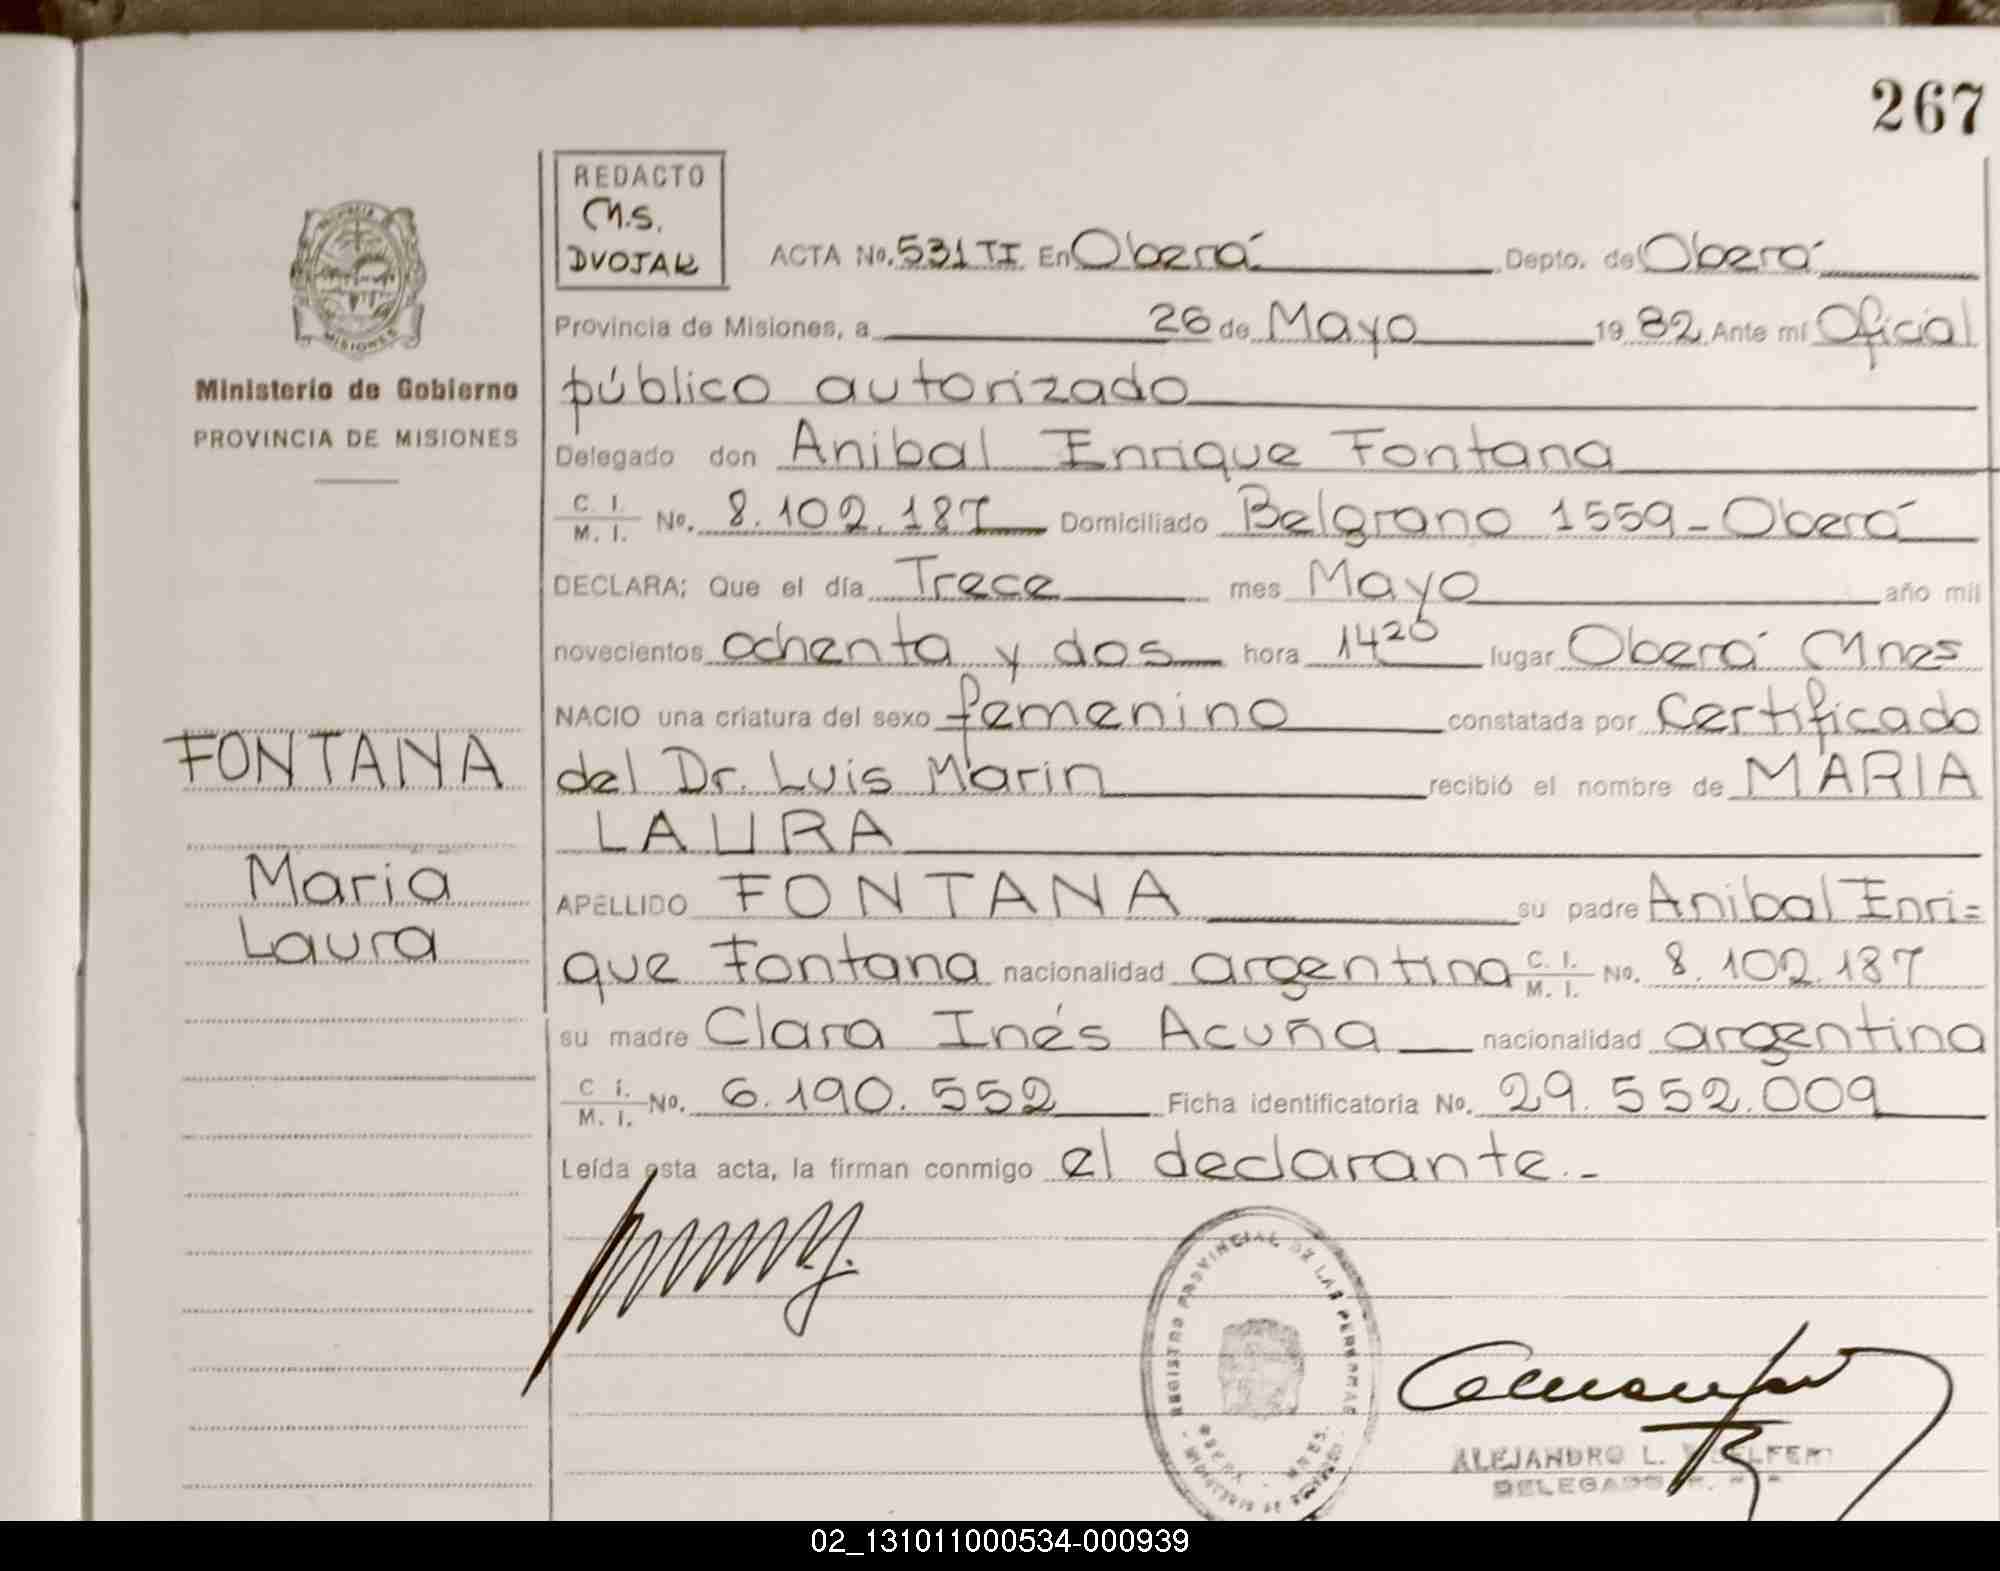 267
REDACTO
M.S.
DVOJAK
ACTA No. 531 TI En Oberá Depto. de Oberá
PROVINCIA
MISIONES
Provincia de Misiones, a 26 de Mayo 1982 Ante mí Oficial
Ministerio de Gobierno
PROVINCIA DE MISIONES
público autorizado
Delegado don Anibal Enrique Fontana
C. I. / M. I. No. 8.102.187 Domiciliado Belgrano 1559 - Oberá
DECLARA; Que el día Trece mes Mayo año mil
novecientos ochenta y dos hora 14 20 lugar Oberá Mnes
NACIO una criatura del sexo femenino constatada por Certificado
FONTANA
del Dr. Luis Marin recibió el nombre de MARIA
LAURA
Maria
Laura
APELLIDO FONTANA su padre Anibal Enri=
que Fontana nacionalidad argentina C. I. / M. I. No. 8.102.187
su madre Clara Inés Acuña nacionalidad argentina
C I. / M. I. No. 6.190.552 Ficha identificatoria No. 29.552.009
Leída esta acta, la firman conmigo el declarante.-
REGISTRO PROVINCIAL DE LAS PERSONAS
OBERA - MNES.
ALEJANDRO L.
DELEGADO
02_131011000534-000939